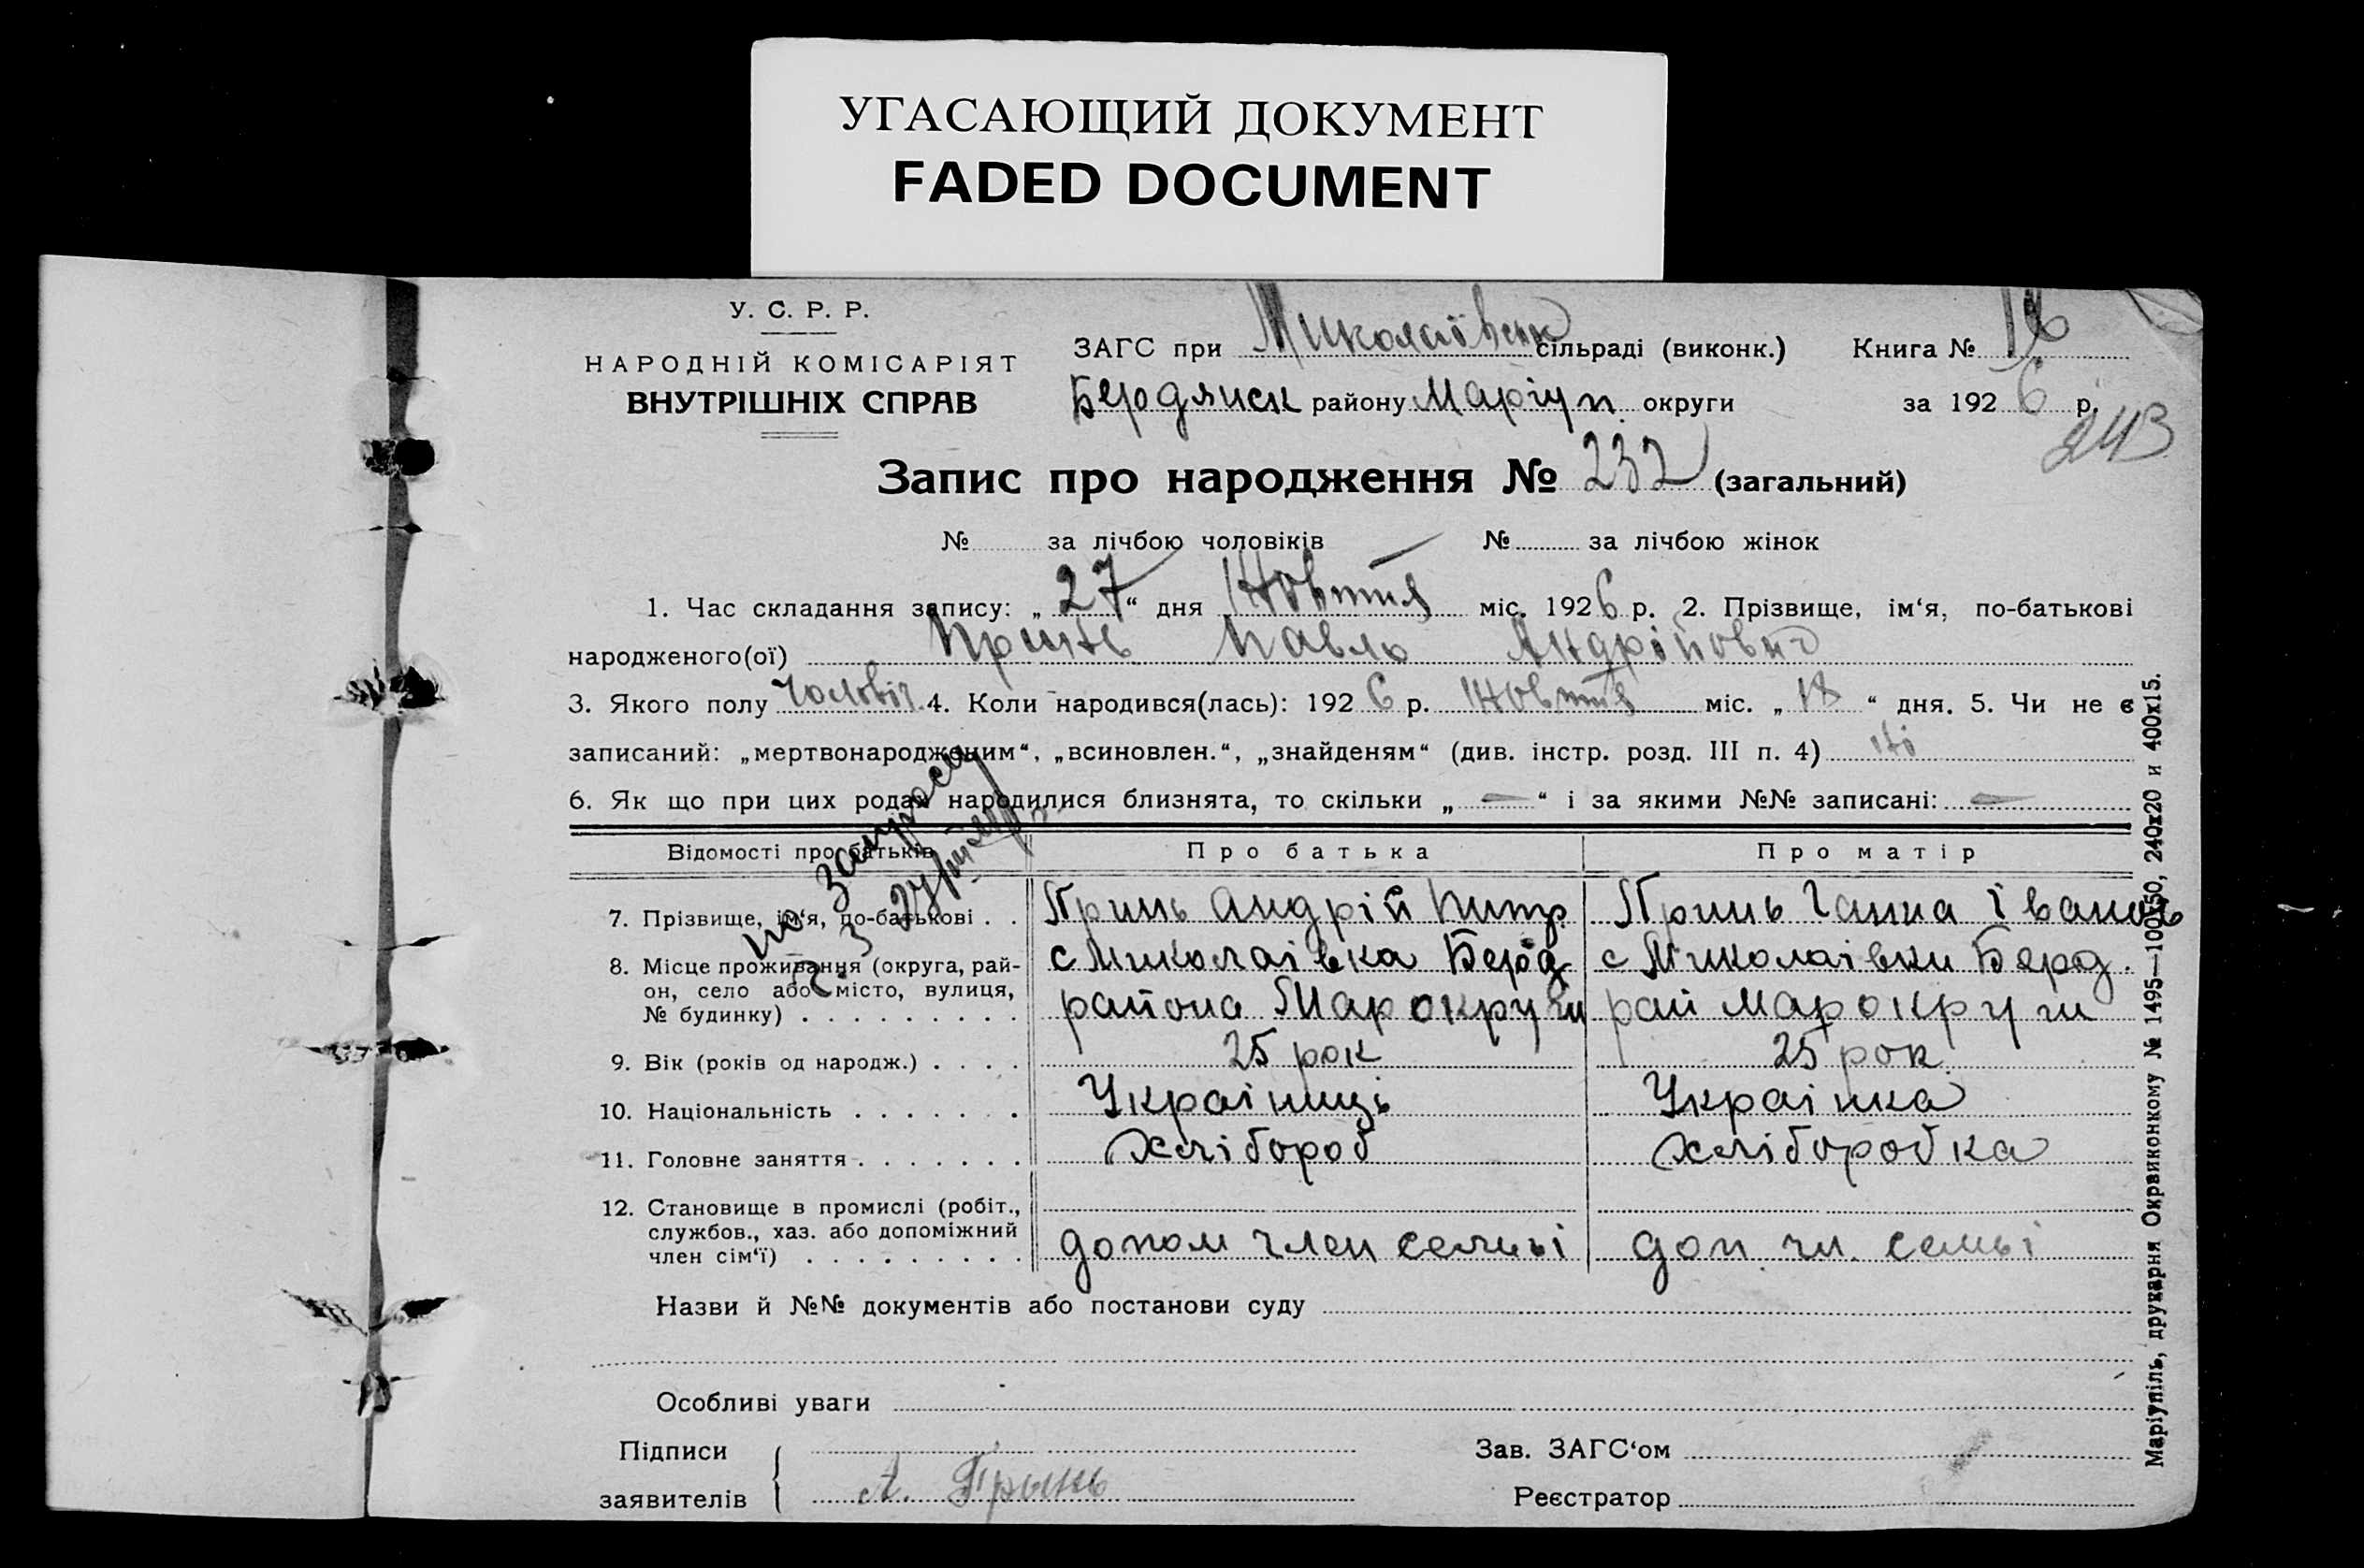 УГАСАЮЩИЙ ДОКУМЕНТ
FADED DOCUMENT
У. С. Р. Р.
НАРОДНІЙ КОМІСАРІЯТ
ВНУТРІШНІХ СПРАВ
ЗАГС при Миколаївськ сільраді (виконк.) Книга №
Бердянск району Маріуп. округи за 192 6 р.
243
Запис про народження № 232 (загальний)
№ за лічбою чоловіків № за лічбою жінок
1. Час складання запису: „ 27 “ дня Жовтня міс. 192 6 р. 2. Прізвище, ім‘я, по-батькові
народженого(ої) Принь Павло Андрійович
3. Якого полу чоловіч. 4. Коли народився(лась): 192 6 р. Жовтня міс. „ 18 “ дня. 5. Чи не є
записаний: „мертвонародженим“, „всиновлен.“, „знайденям“ (див. інстр. розд. III п. 4) ні
6. Як що при цих родах народилися близнята, то скільки „ — “ і за якими №№ записані: —
Відомості про батьків Про батька Про матір
7. Прізвище, ім‘я, по-батькові . . Принь Андрій Питр. Принь Ганна Іванов
8. Місце проживання (округа, рай- с Миколаівка Берд. с Миколаівки Берд.
он, село або місто, вулиця, района Мар округи рай Мар округи
№ будинку) . . . . . . . . .
9. Вік (років од народж.) . . . . 25 рок 25 рок.
10. Національність . . . . . . . Украіниць Украінка
11. Головне заняття . . . . . . . Хлібороб хліборобка
12. Становище в промислі (робіт.,
службов., хаз. або допоміжний
член сім‘ї) . . . . . . . . . допом член семьі доп. чл. семьі
Назви й №№ документів або постанови суду
Особливі уваги
Підписи
заявителів А. Прынь
Зав. ЗАГС‘ом
Реєстратор
по запросу
Маріупіль, друкарня Окрвиконкому № 1495—100х50, 240х20 и 400х15.